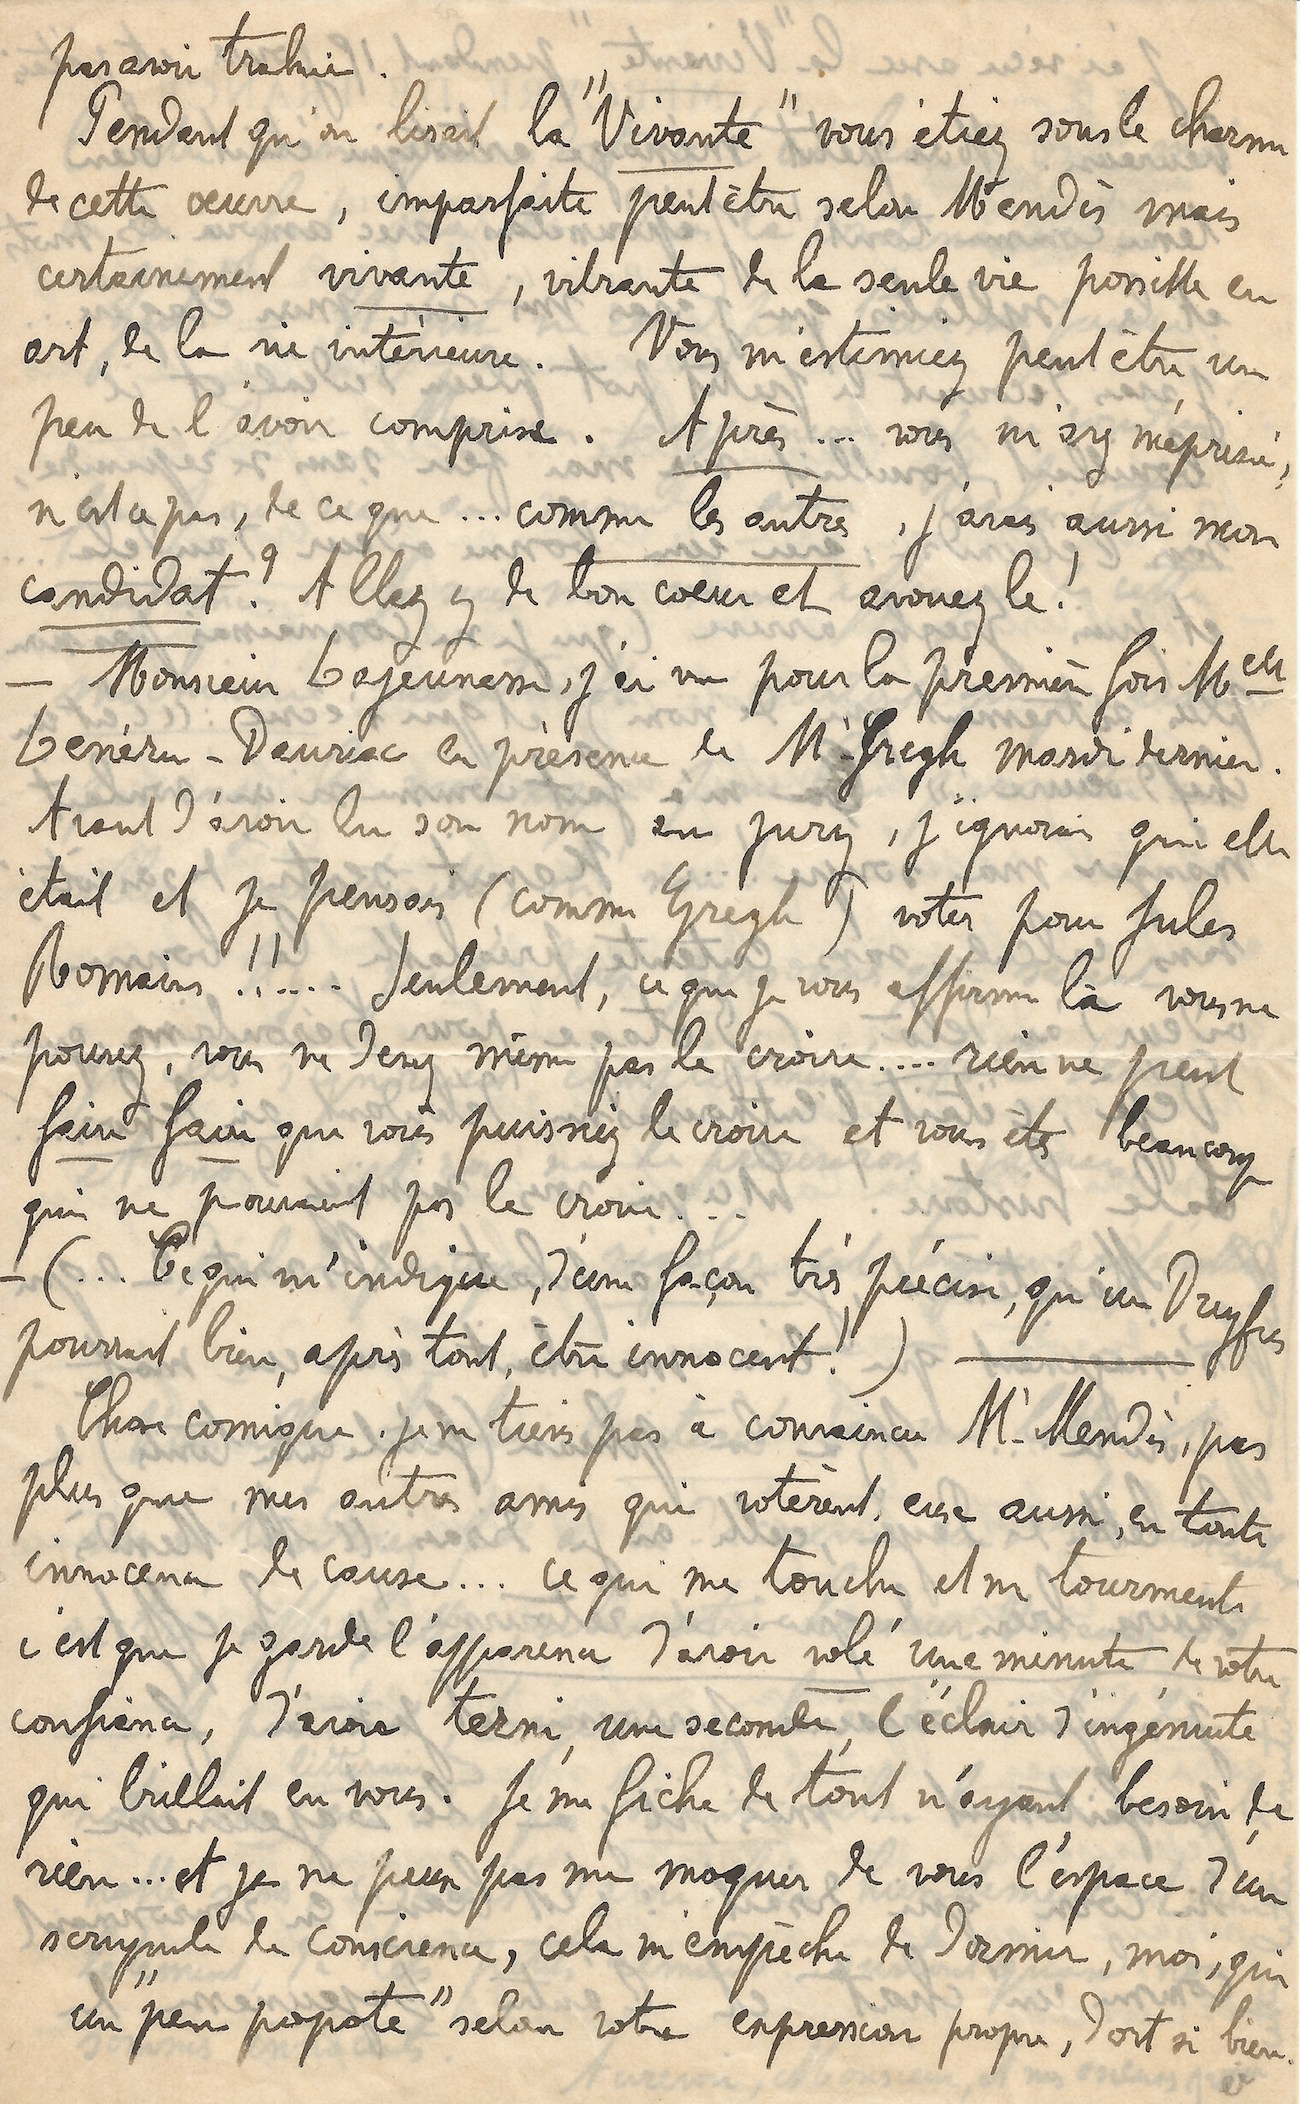 pas avoir trahie.
Pendant qu'on lisait la "Vivante" vous étiez sous le charme
de cette oeuvre, imparfaite peut être selon Mendès mais
certainement vivante, vibrante de la seule vie possible en
art, de la vie intérieure. Vous m'estimiez peut être un
peu de l'avoir comprise. Après... vous m'avez méprisée,
n'est ce pas, de ce que... comme les autres, j'avais aussi mon
candidat? Allez y de bon coeur et avouez le!
— Monsieur Lajeunesse, j'ai vu pour la première fois Melle
Lenéru-Dauriac en présence de Mr Gregh mardi dernier.
Avant d'avoir lu son nom au jury, j'ignorais qui elle
était et je pensais (comme Gregh) voter pour Jules
Romains!!..... Seulement, ce que je vous affirme là vous ne
pouvez, vous ne devez même pas le croire.... rien ne peut
faire faire que vous puissiez le croire et vous êtes beaucoup
qui ne pouvaient pas le croire...
— (... Ce qui m'indique, d'une façon très précise, qu'un Dreyfus
pourrait bien, après tout, être innocent!)
Chose comique, je ne tiens pas à convaincre Mr Mendès, pas
plus que mes autres amis qui votèrent, eux aussi, en toute
innocence de cause... ce qui me touche et me tourmente
c'est que je garde l'apparence d'avoir volé une minute de votre
confiance, d'avoir terni, une seconde, l'éclair d'ingénuité
qui brillait en vous. Je me fiche de tout n'ayant besoin de
rien... et je ne peux pas me moquer de vous l'espace d'un
scrupule de conscience, cela m'empêche de dormir, moi, qui
un "peu popote" selon votre expression propre, dort si bien.